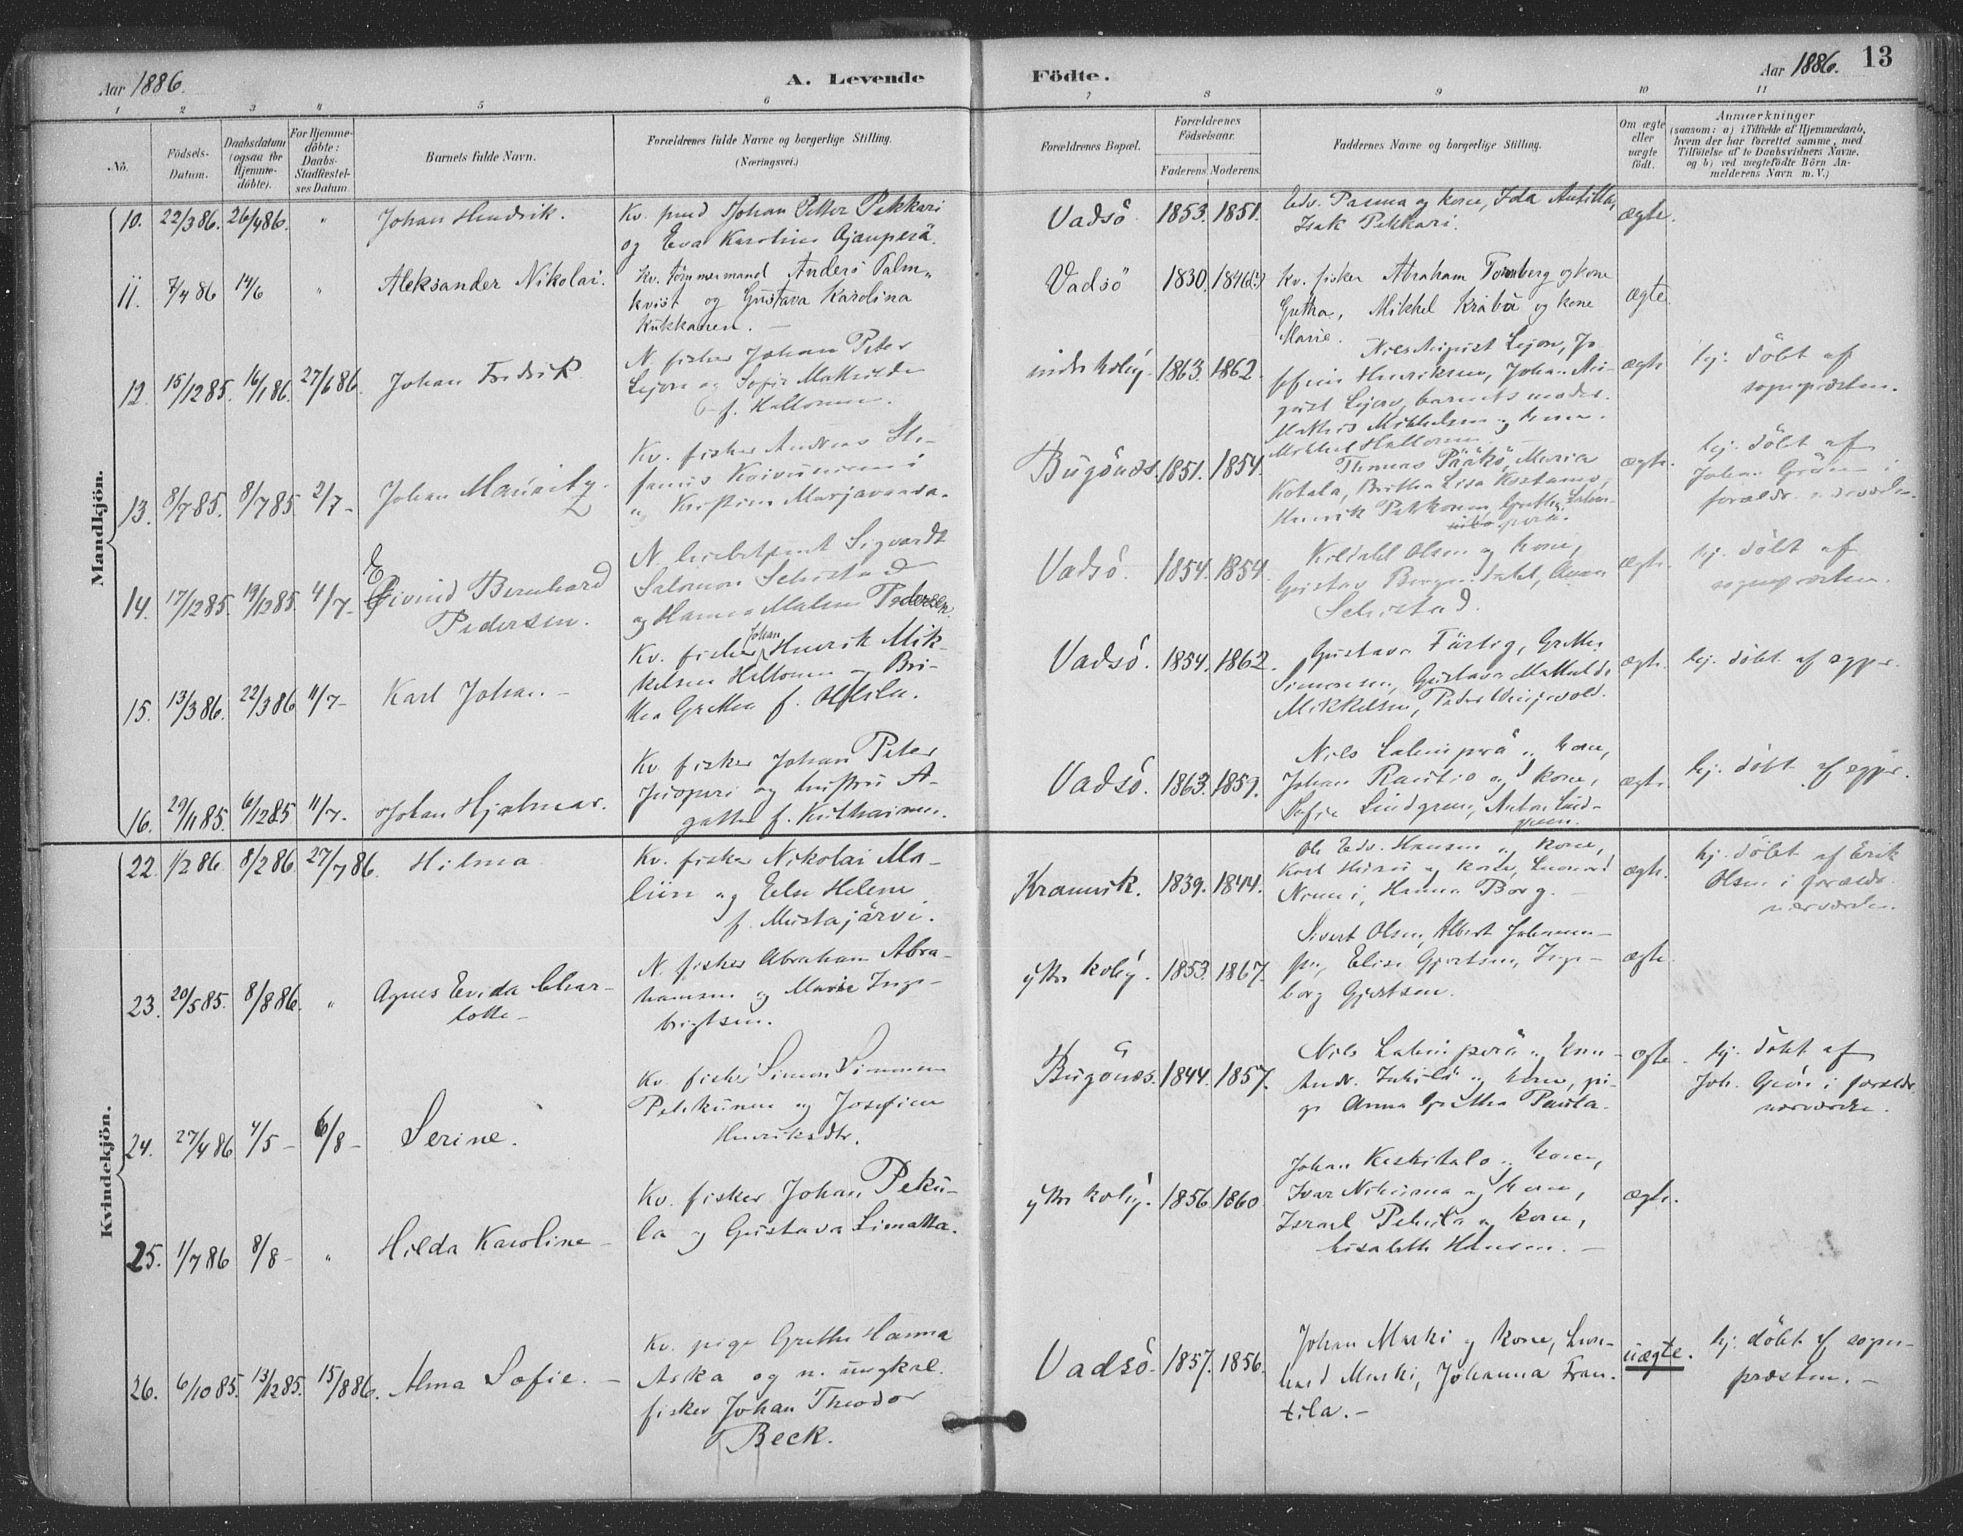 Aar 1886.
A. Levende
Födte.
Aar 1886. 13
1 2 3 4 5 6 7 8 9 10 11
No.
Födsels-
Datum.
Daabsdatum
(ogsaa for
Hjemme-
döbte).
For Hjemme-
döbte:
Daabs-
Stadfæstel-
ses Datum.
Barnets fulde Navn.
Forældrenes fulde Navne og borgerlige Stilling.
(Næringsvei.)
Forældrenes Bopæl.
Forældrenes
Födselsaar.
Faderens. Moderens.
Faddernes Navne og borgerlige Stilling.
Om ægte
eller
uægte
födt.
Anmærkninger
(saasom: a) i Tilfælde af Hjemmedaab,
hvem der har forrettet samme, med
Tilföielse af to Daabsvidners Navne,
og b) ved uægtefödte Börn An-
melderens Navn m. V.)
Mandkjön.
10. 22/3 86. 26/4 86. " Johan Hendrik.
Kv. Johan Petter Pekkari
og Eva Karolina Ajanperä.
Vadsö. 1853. 1851.
Edv. Pauna og kone, Ida Antilla,
Isak Pekkari.
ægte.
11. 7/4 86 14/6 " Aleksander Nikolai.
Kv. tömmermand Anders Palm-
kvist og Gustava Karolina
Kukkanen. —
Vadsö 1830.
Kv. fisker Abraham Tornberg og kone
Gretha, Mikkel Kraba og kone
Marie.
ægte
12. 15/12 85. 16/1 86. 27/6 86. Johan Fredrik
N. fisker Johan Peter
Lejon og Sofie Mathilde
f. Haltonen.
indr. kolöy. 1863. 1862.
Nils August Lejon, Jo
sefine Henriksen, Johan Au-
gust Lejon, barnets moder.
Mathis Mikkelsen og kone.
Mikkel Haltonen.
ægte.
hj. döbt af
sognepræsten.
13. 8/7 85. 8/7 85 2/7 - Johan Mauritz.
Kv. fisker Andreas Ste-
fanus Koivuniemi
og Kristine Marjavaara.
Bugönæs. 1851. 1854.
Thomas Maria
Kotala, Britha Lisa Kostamo,
Henrik Pekkonen, Gretha
perä.
ægte.
hj. döbt af
Johan Grön i
forældr. nærværelse.
14. 17/12 85. 19/12 85. 4/7 - Eivind Bernhard
Pedersen.
N. Sigvardt
Salomon Schistad
og Hanna Malene Pedersen.
Vadsö. 1854. 1854.
Kildahl Olsen og kone,
Gustav Dahl, Anna
Schistad.
ægte.
hj. döbt af
sognepræsten.
15. 13/3 86. 22/3 86 11/7 - Karl Johan -
Kv. fisker Johan Henrik Mik-
kelsen Haltonen og Bri-
tha Gretha f.
Vadsö. 1854. 1862.
Gustava Färtig, Grethe
Simonsen, Gustava Mathilde
Mikkelsen, Peder
ægte.
hj. döbt af sogpr.
16. 29/11 85. 6/12 85 11/7 - Johan Hjalmar.
Kv. fisker Johan Peter
Juoperi og hustru A-
gatha f.
Vadsö. 1863. 1859.
Nils Lakenperä og kone,
Johan Rautio og kone,
Sofie Lindgren, Anton Lind-
green.
ægte.
hj. döbt af sogpr.
Kvindekjön.
22. 1/2 86 8/2 86 27/7 86. Hilma
Kv. fisker Nikolai Ma-
liin og Else Helene
f. Mustajärvi.
Kramvik. 1839. 1844.
Ole Edv. Hansen og kone,
Karl og kone,
Niemi, Hanna Borg.
ægte.
hj. döbt af Erik
Olsen i forældr.
nærværelse.
23. 20/5 85. 8/8 86. " Agnes Evida Char-
lotte -
N. fisker Abraham Abra-
hamsen og Marie Inge-
brigtsen.
ytre kolöy. 1853. 1867.
Sivert Olsen, Albert Johannes-
sen, Elise Gjertsen, Inge-
borg Gjertsen.
ægte.
24. 27/4 86 4/5 - 6/8 - Serine.
Kv. fisker Simon Simonsen
Pekkunen og Josefine
Henriksdtr.
Bugönæs. 1844. 1857.
Nils Lakenperä og kone
Andr. og kone, pi-
ge Anna Gretha Pauta.
ægte.
hj. döbt af
Joh. Grön i forældr.
nærværelse.
25. 1/7 86 8/8 - " Hilda Karoline -
Kv. fisker Johan Peku-
la og Gustava Limatta.
ytre kolöy. 1856. 1860.
Johan Keskitalo og kone,
Ivar Nikuma og kone,
Israel Pekula og kone,
Lisabeth Hansen. -
ægte.
26. 6/10 85. 13/12 85. 15/8 86. Alma Sofie. -
Kv. pige Grethe Hanna
Aska og n. ungkarl
fisker Johan Theodor
Beck.
Vadsö. 1857. 1856.
Johan Maski og kone, Leon-
hard Maski, Johanna Fran-
tila. -
uægte.
hj. döbt af sogne-
præsten. -